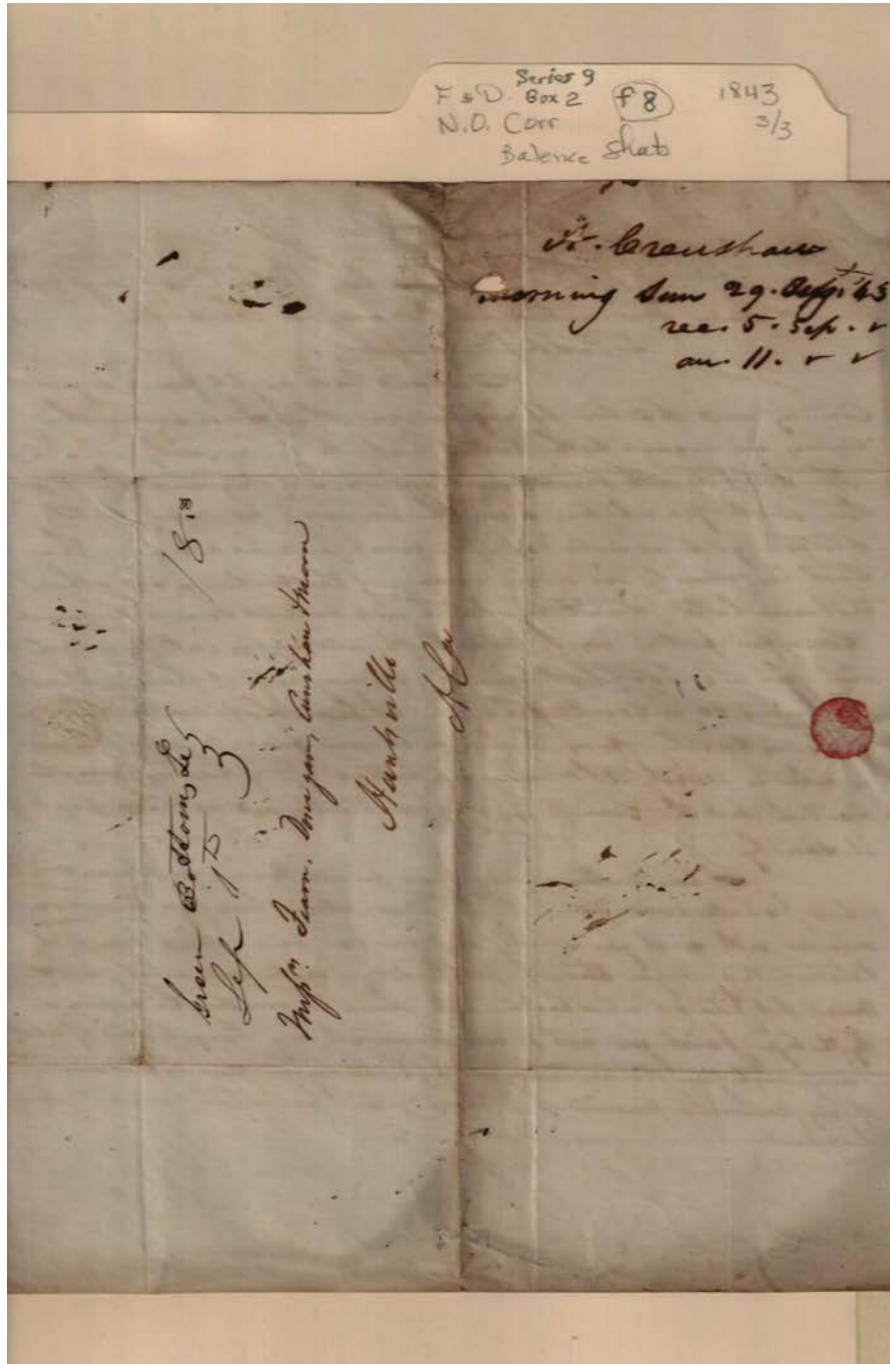 Series 9
F & D. Box 2 f 8 1843
N.O. Corr 3/3
Balence Shats
Crenshaw
morning Sun 29. Augt 43
rec. 5. Sep. v
an. 11. v v
Green Bottom
Sep 1st
Fearn, Donegan, Crenshaw & Moore
Huntsville
Ala